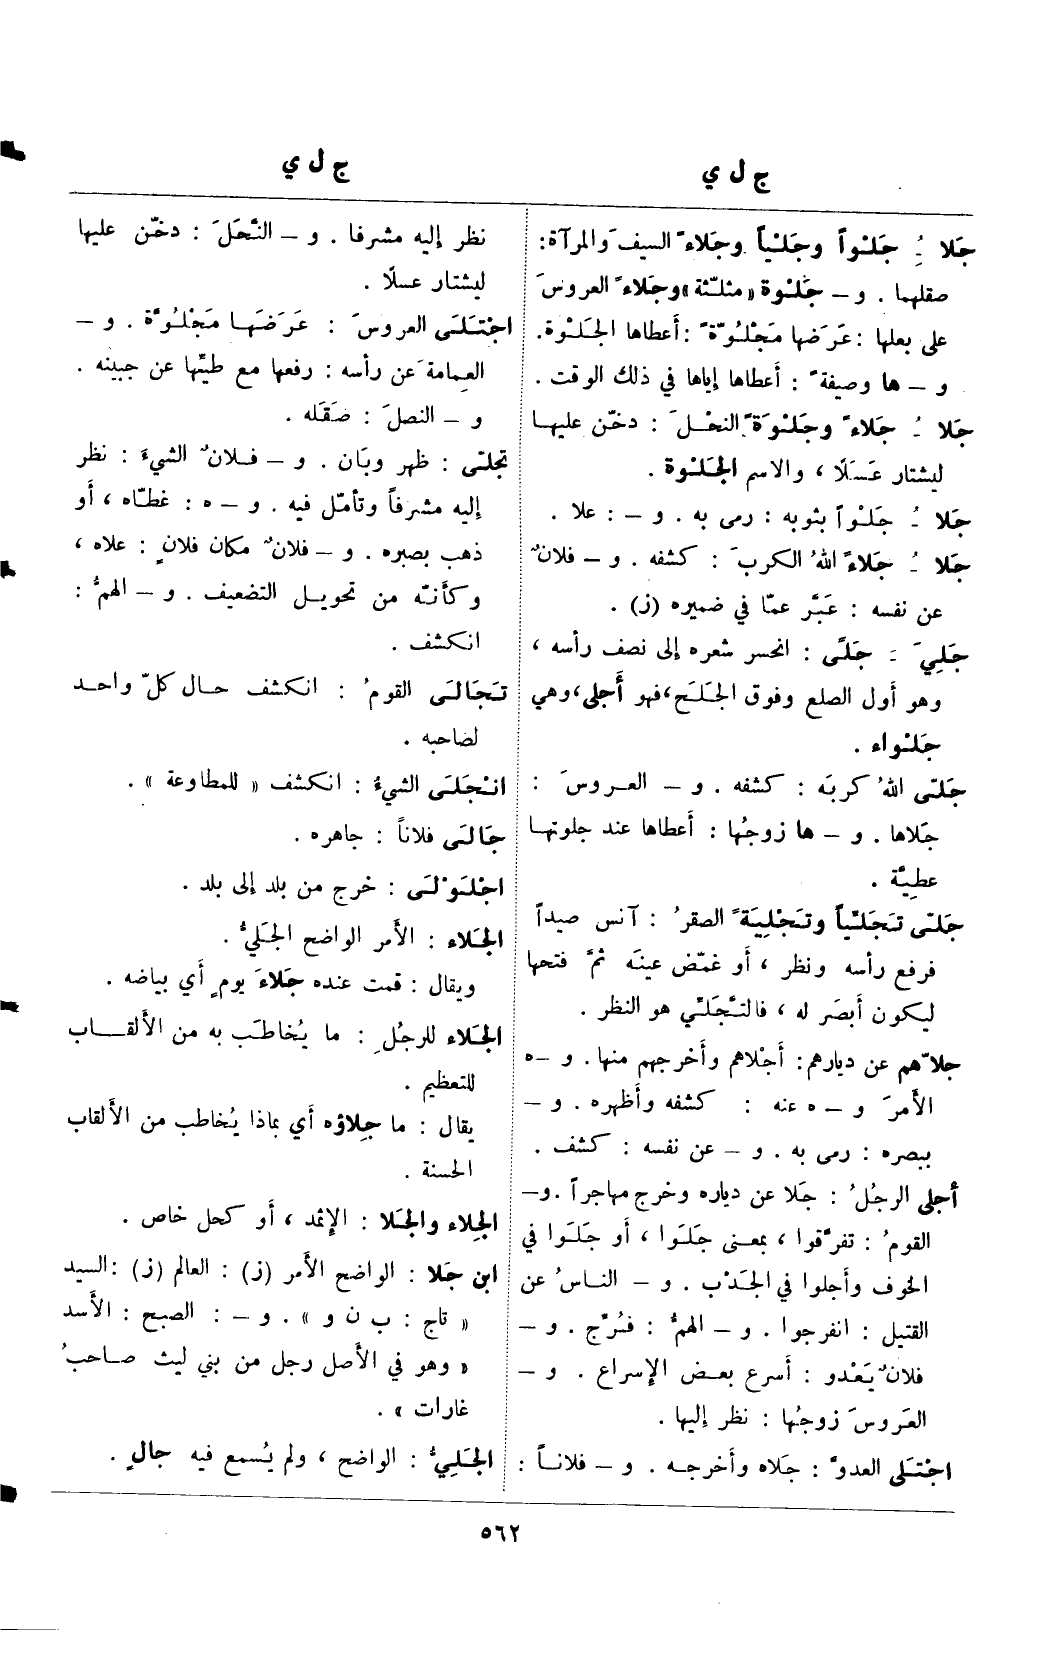 ج ل ي
جَلا ـُ جَلْواً وجَلْياً وجَلاءً السيفَ والمرآةَ:
صقلهما . و – جَلْوة «مثلثة» وجَلاءً العروسَ
على بعلها : عَرَضها مَجْلُوَّةً : أعطاها الجَلْوة.
و – ها وصيفةً : أعطاها إياها في ذلك الوقت .
جَلا ـُ جَلاءً وجَلْوَةً النحْلَ : دخّن عليها
ليشتار عَسَلًا ، والاسم الجَلْوة .
جَلا ـُ جَلْواً بثوبه : رمى به . و – : علا .
جَلا ـُ جَلاءً اللهُ الكربَ : كشفه . و – فلانٌ
عن نفسه : عَبَّر عمّا في ضميره (ز) .
جَلِيَ ـَ جَلًى : انحسر شعره إلى نصف رأسه ،
وهو أول الصلع وفوق الجَلَح،فهو أَجلى،وهي
جَلْواء .
جَلّى اللهُ كربَه : كشفه . و – العروسَ :
جَلاها . و – ها زوجُها : أعطاها عند جلوتها
عطيَّة .
جَلّى تَجَلّياً وتَجْلِيَةً الصقرُ : آنس صيداً
فرفع رأسه ونظر ، أو غمّض عينَه ثمَّ فتحها
ليكون أبصَر له ، فالتَّجَلّي هو النظر .
جلاّهم عن ديارهم: أجْلاهم وأخرجهم منها. و –ه
الأمرَ و – ه عنه : كشفه وأظهره . و –
ببصره : رمى به . و – عن نفسه : كشف .
أجلى الرجُلُ : جَلا عن دياره وخرج مهاجراً .و–
القومُ : تفرّقوا ، بمعنى جلَوا ، أو جَلَوا في
الخوف وأجلوا في الجَدْب . و – الناسُ عن
القتيل : انفرجوا . و – الهمُّ : فُرّج . و –
فلانٌ يَعْدو : أسرع بعض الإسراع . و –
العَروسَ زوجُها : نظر إليها .
اجْتَلى العدوَّ : جَلاه وأخرجه . و – فلاناً :
ج ل ي
نظر إليه مشرفا . و – النَّحَلَ : دخّن عليها
ليشتار عسلًا .
اجْتَلَى العروسَ : عَرَضَها مَجْلُوَّة . و –
العِمامةَ عن رأسه : رفعها مع طيّها عن جبينه .
و – النصلَ : صَقَله .
تجلّى : ظهر وبَان . و – فلانٌ الشيءَ : نظر
إليه مشرفاً وتأمّل فيه . و – ه : غطّاه ، أو
ذهب بصبره . و – فلانٌ مكان فلانٍ : علاه ،
وكأنّه من تحويل التضعيف . و – الهمُّ :
انكشف .
تَجَالَى القومُ : انكشف حال كلّ واحد
لضاحبه .
انْجَلَى الشيءُ : انكشف « للمطاوعة » .
جَالَى فلاناً : جاهره .
اجْلَوْلَى : خرج من بلد إلى بلد .
الجَلاء : الأمر الواضح الجَليُّ .
ويقال : قمت عنده جَلاءَ يومٍ أي بياضه .
الجَلاء للرجُلِ : ما يُخاطَب به من الألقاب
للتعظيم .
يقال : ما جِلاؤه أي بماذا يُخاطب من الألقاب
الحسنة .
الجِلاء والجَلا : الإثمد ، أو كحل خاص .
ابن جَلا : الواضح الأمر (ز) : العالم (ز) :السيد
« تاج : ب ن و » . و – : الصبح : الأسد
« وهو في الأصل رجل من بني ليث صاحبُ
غارات » .
الجَلِيُّ : الواضح ، ولم يُسمع فيه جالٍ .
٥٦٢